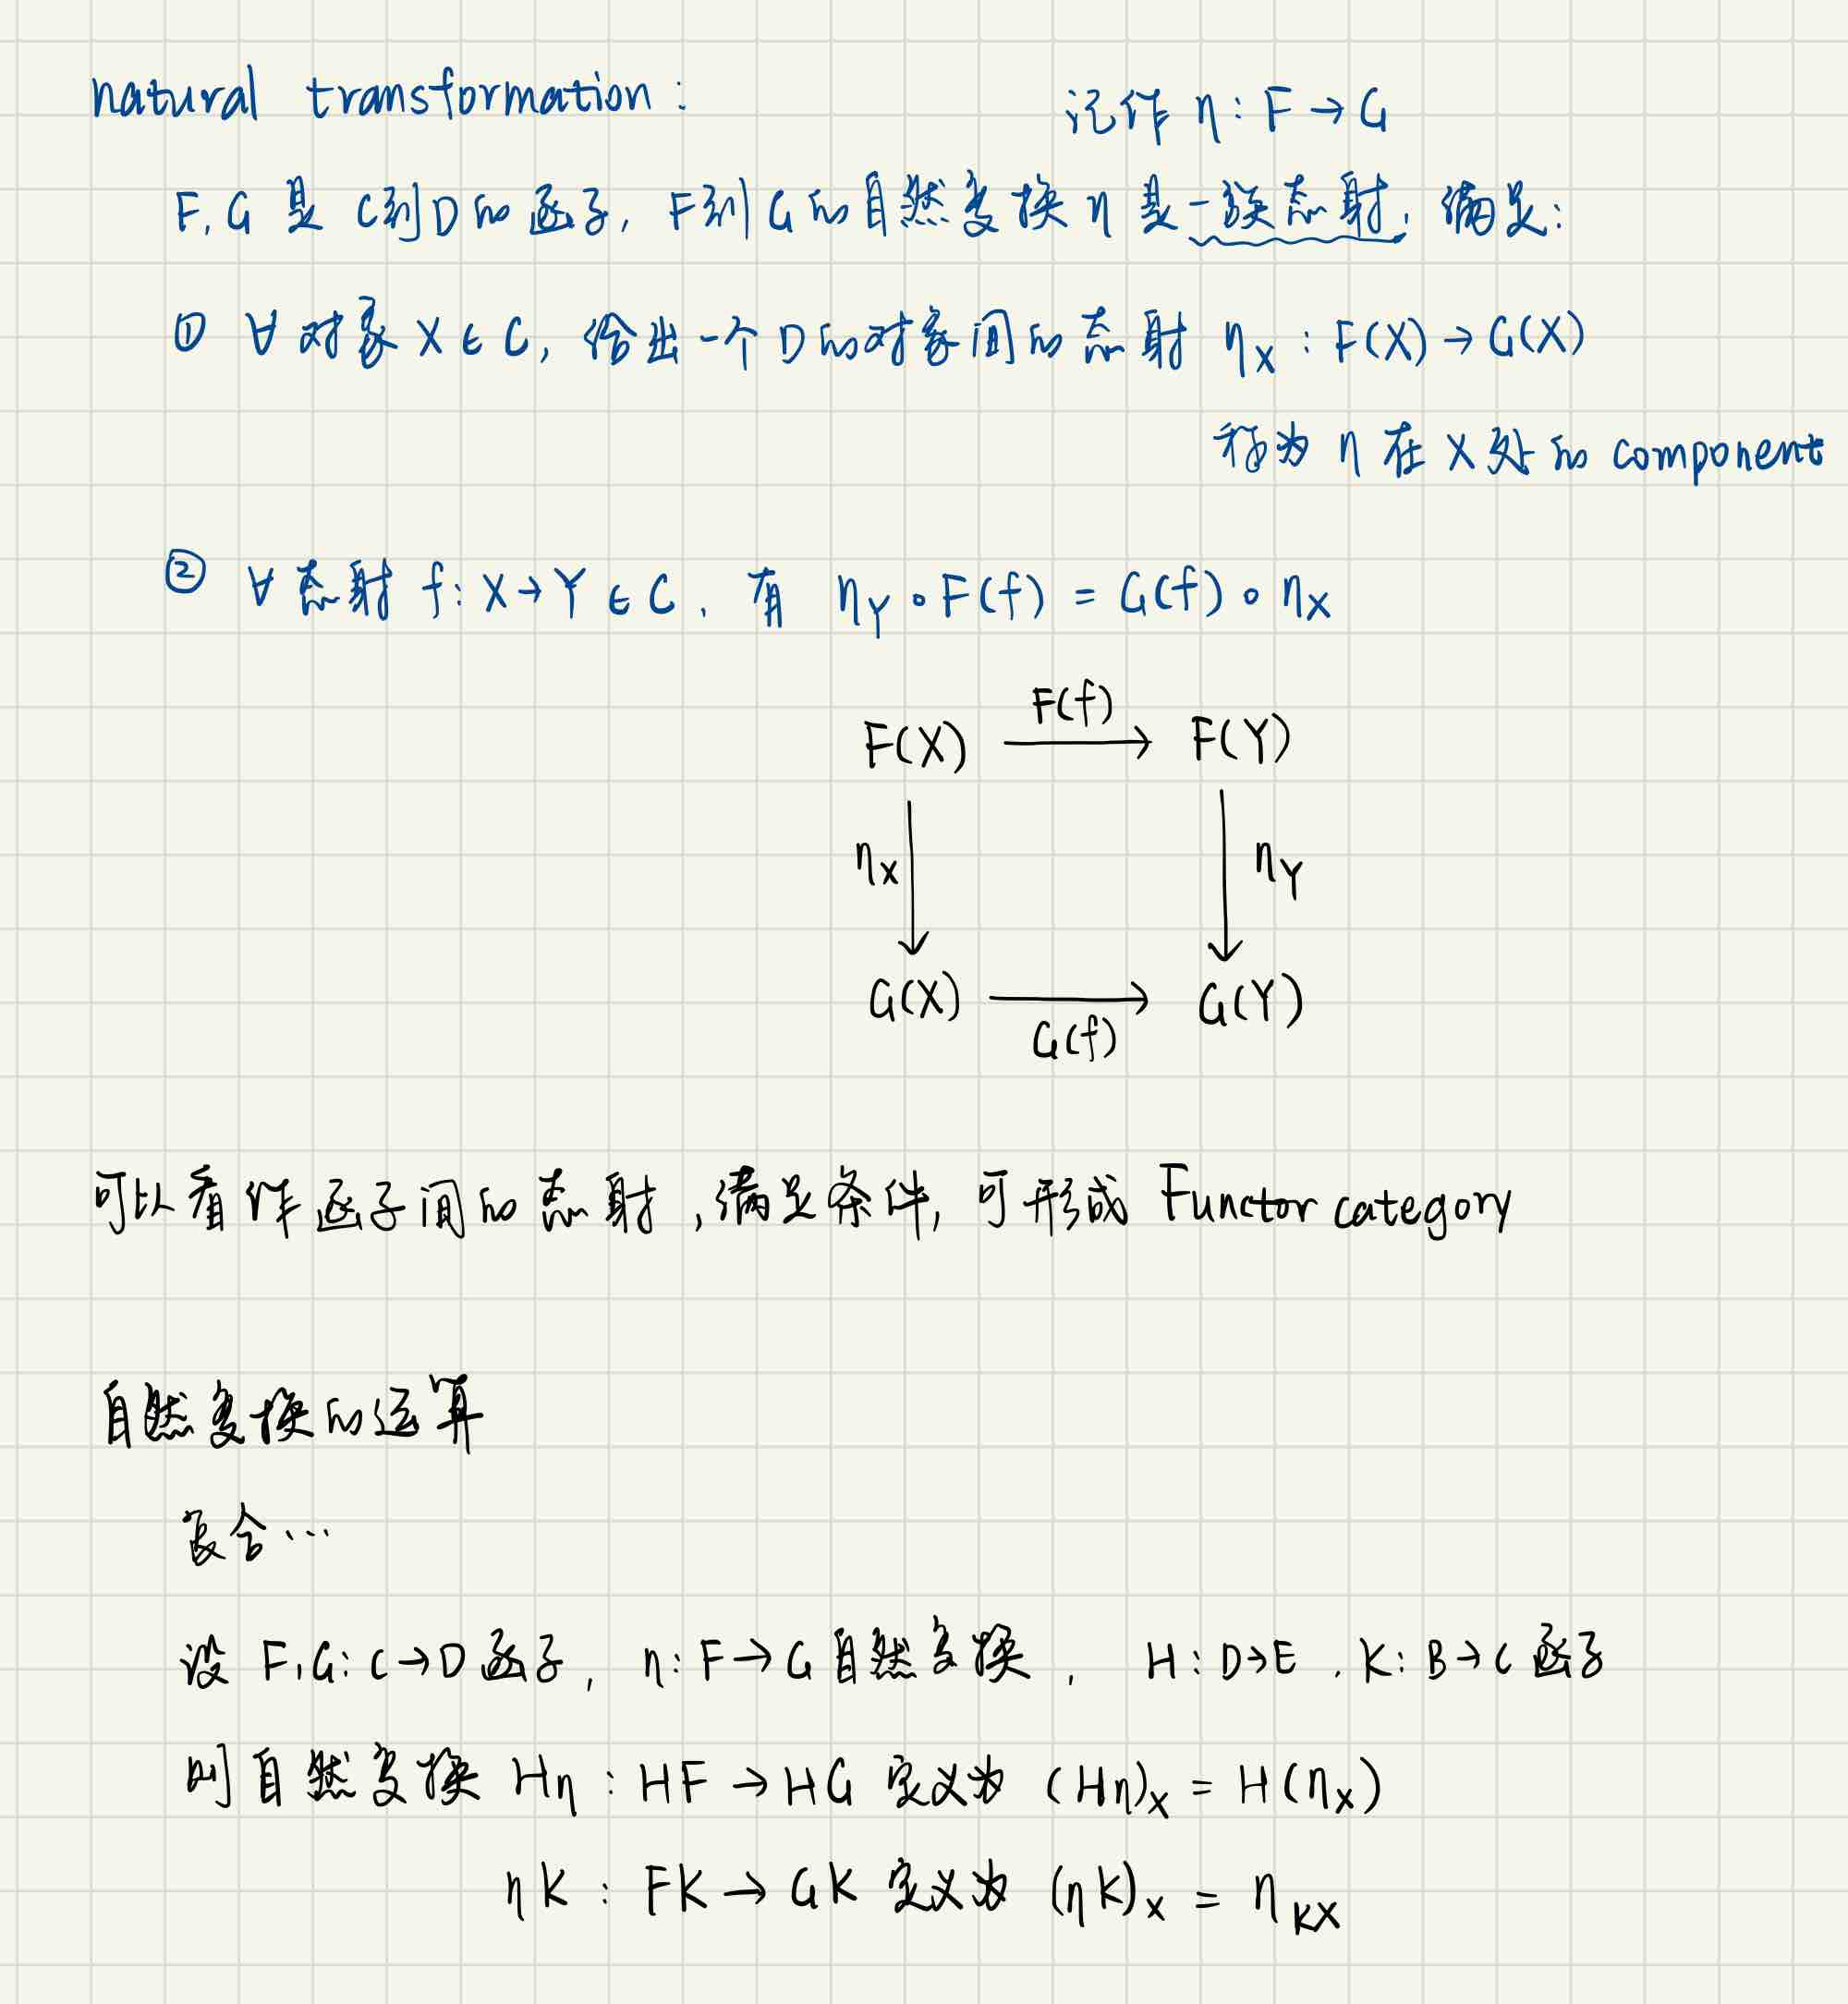 natural transformation: 记作 η: F → G
F, G 是 C到D的函子, F到G的自然变换 η 是一族态射, 满足:
① ∀ 对象 X ∈ C, 给出一个D的对象间的态射 ηX : F(X) → G(X)
称为 η 在 X 处的 component
② ∀ 态射 f: X → Y ∈ C, 有 ηY ∘ F(f) = G(f) ∘ ηX
F(f)
F(X) → F(Y)
ηX ηY
G(X) → G(Y)
G(f)
可以看作函子间的态射, 满足条件, 可形成 Functor category
自然变换的运算
复合…
设 F, G: C → D 函子, η: F → G 自然变换, H: D → E, K: B → C 函子
则自然变换 Hη : HF → HG 定义为 (Hη)X = H(ηX)
ηK : FK → GK 定义为 (ηK)X = ηKX